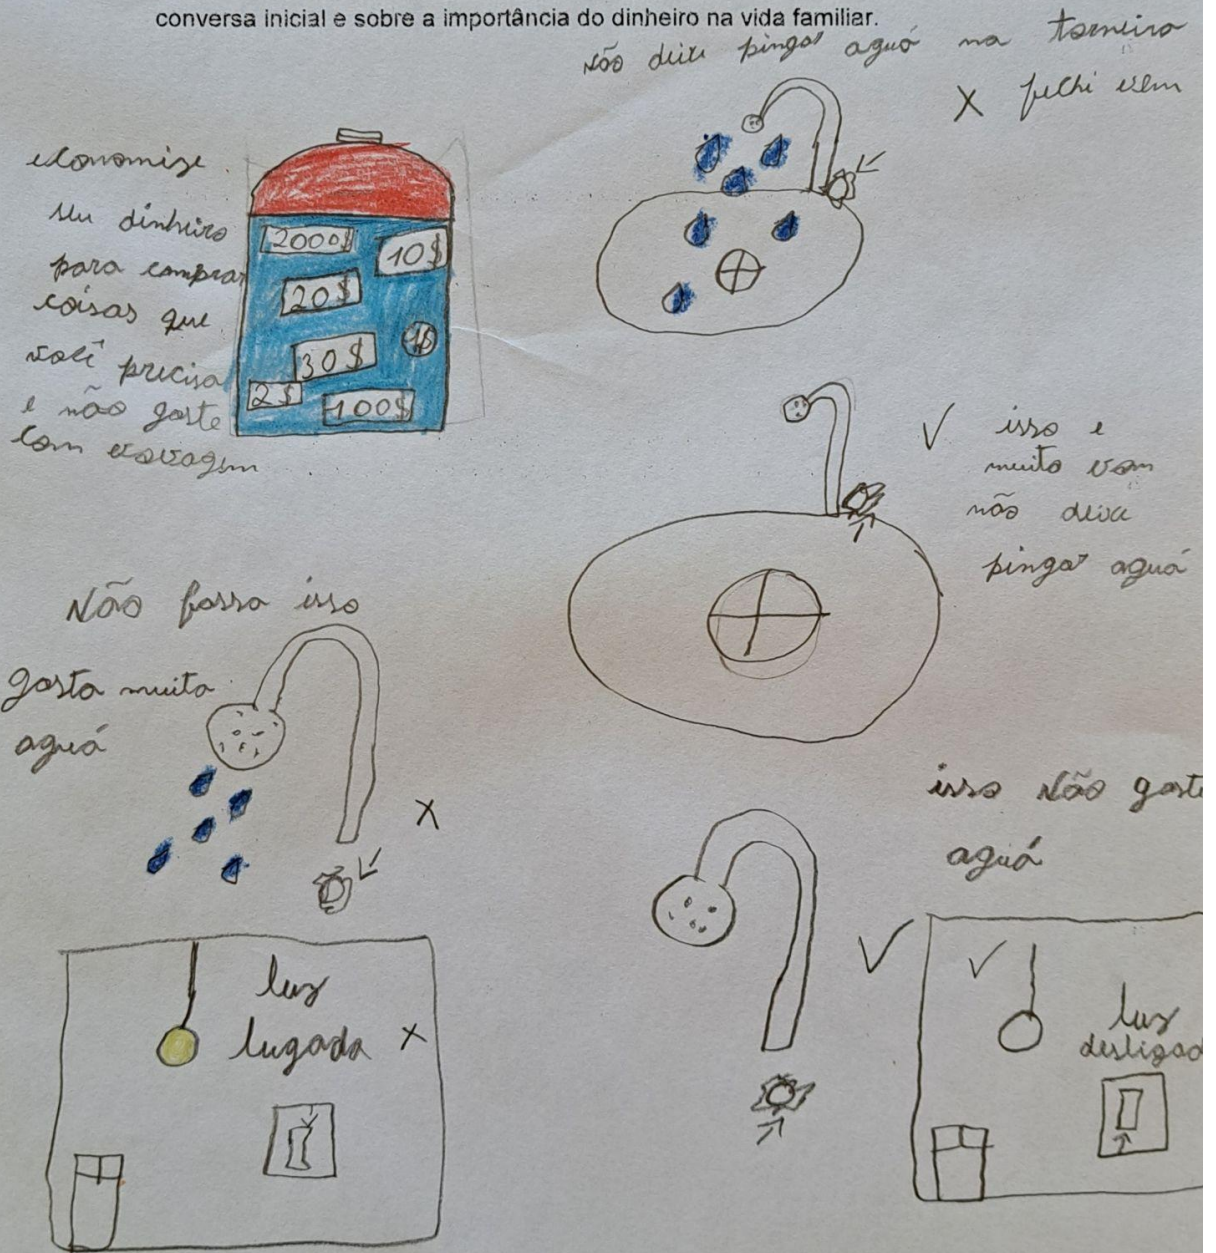 conversa inicial e sobre a importância do dinheiro na vida familiar.
não deixe pingar aguá na torneira
X fechi vem
economize
seu dinheiro
para comprar
coisas que
você precisa
e não gaste
com vovagem
2000$
10$
20$
30$
1$
2$
100$
✓ isso e
muito vom
não deixa
pingar aguá
Não fassa isso
gasta muita
aguá
X
isso Não gasta
aguá
✓
luz
lugada X
✓ luz
desligad